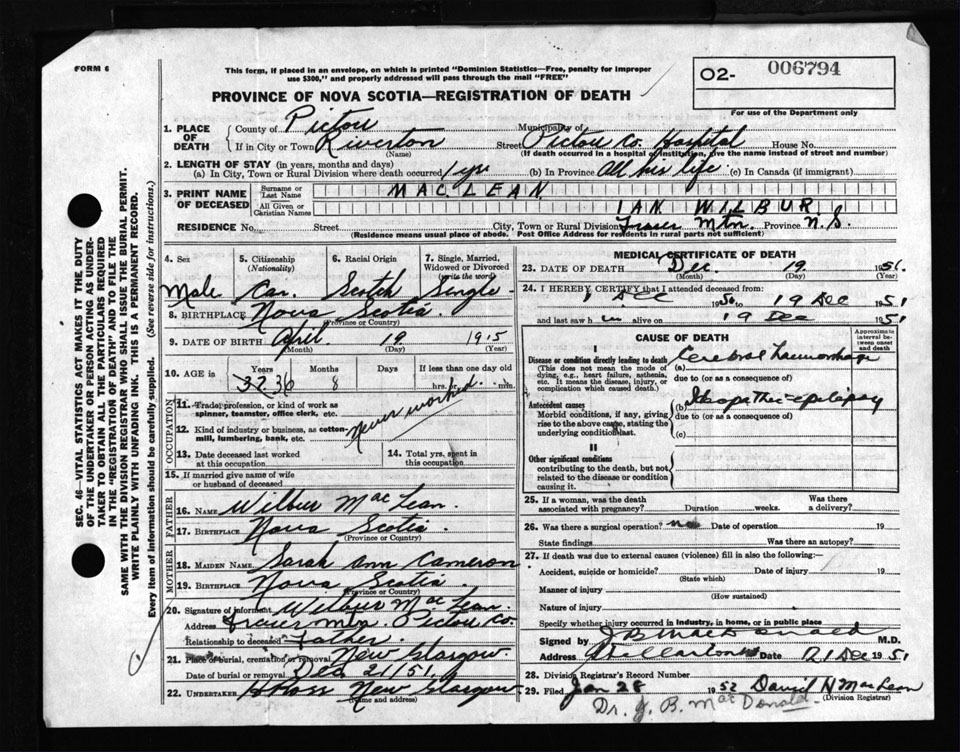 FORM 6
This form, if placed in an envelope, on which is printed "Dominion Statistics—Free, penalty for improper
use $300," and properly addressed will pass through the mail "FREE"
O2- 006794
For use of the Department only
PROVINCE OF NOVA SCOTIA—REGISTRATION OF DEATH
1. PLACE OF DEATH
County of Pictou Municipality of
If in City or Town Riverton Street Pictou Co. Hospital House No.
(Name) (If death occurred in a hospital or institution, give the name instead of street and number)
2. LENGTH OF STAY (in years, months and days)
(a) In City, Town or Rural Division where death occurred 1 yr. (b) In Province All his life. (c) In Canada (if immigrant)
3. PRINT NAME OF DECEASED
Surname or Last Name MACLEAN
All Given or Christian Names IAN WILBUR
RESIDENCE No. Street City, Town or Rural Division Fraser Mtn. Province N.S.
(Residence means usual place of abode. Post Office Address for residents in rural parts not sufficient)
4. Sex
Male
5. Citizenship
(Nationality)
Can.
6. Racial Origin
Scotch
7. Single, Married,
Widowed or Divorced
(write the word)
Single
8. BIRTHPLACE Nova Scotia
(Province or Country)
9. DATE OF BIRTH April 19 1915
(Month) (Day) (Year)
10. AGE in Years Months If less than one day old
36 8 hrs. min.
OCCUPATION
11. Trade, profession, or kind of work as
spinner, teamster, office clerk, etc.
12. Kind of industry or business, as cotton-
mill, lumbering, bank, etc.
Never worked
13. Date deceased last worked
at this occupation
14. Total yrs. spent in
this occupation
15. If married give name of wife
or husband of deceased
FATHER
16. NAME Wilbur MacLean
17. BIRTHPLACE Nova Scotia.
(Province or Country)
MOTHER
18. MAIDEN NAME Sarah Ann Cameron
19. BIRTHPLACE Nova Scotia.
(Province or Country)
20. Signature of informant Wilbur MacLean.
Address Fraser Mtn. Pictou Co.
Relationship to deceased Father.
21. Place of burial, cremation or removal New Glasgow.
Date of burial or removal Dec 21/51
22. UNDERTAKER H Ross New Glasgow
(Name and address)
MEDICAL CERTIFICATE OF DEATH
23. DATE OF DEATH Dec. 19 1951.
(Month) (Day) (Year)
24. I HEREBY CERTIFY that I attended deceased from:
1 Dec 1950 to 19 Dec 1951
and last saw him alive on 19 Dec 1951
CAUSE OF DEATH
Approximate
interval be-
tween onset
and death
I
Disease or condition directly leading to death
(This does not mean the mode of
dying, e.g., heart failure, asthenia,
etc. It means the disease, injury, or
complication which caused death.)
(a) Cerebral haemorrhage
due to (or as a consequence of)
Antecedent causes
Morbid conditions, if any, giving
rise to the above cause, stating the
underlying condition last.
(b) Idiopathic epilepsy
due to (or as a consequence of)
(c)
II
Other significant conditions
contributing to the death, but not
related to the disease or condition
causing it.
25. If a woman, was the death
associated with pregnancy? Duration weeks. Was there
a delivery?
26. Was there a surgical operation? no Date of operation 19
State findings Was there an autopsy?
27. If death was due to external causes (violence) fill in also the following:—
Accident, suicide or homicide? Date of injury 19
(State which)
Manner of injury
(How sustained)
Nature of injury
Specify whether injury occurred in industry, in home, or in public place
Signed by J B MacDonald M.D.
Address Stellarton Date 21 Dec 1951
28. Division Registrar's Record Number
29. Filed Jan 28 1952 David H MacLean
(Division Registrar)
Dr. J. B. MacDonald.
SEC. 46—VITAL STATISTICS ACT MAKES IT THE DUTY
OF THE UNDERTAKER OR PERSON ACTING AS UNDER-
TAKER TO OBTAIN ALL THE PARTICULARS REQUIRED
IN THE "REGISTRATION OF DEATH" AND TO FILE THE
SAME WITH THE DIVISION REGISTRAR WHO SHALL ISSUE THE BURIAL PERMIT.
WRITE PLAINLY WITH UNFADING INK. THIS IS A PERMANENT RECORD.
Every item of information should be carefully supplied. (See reverse side for instructions.)